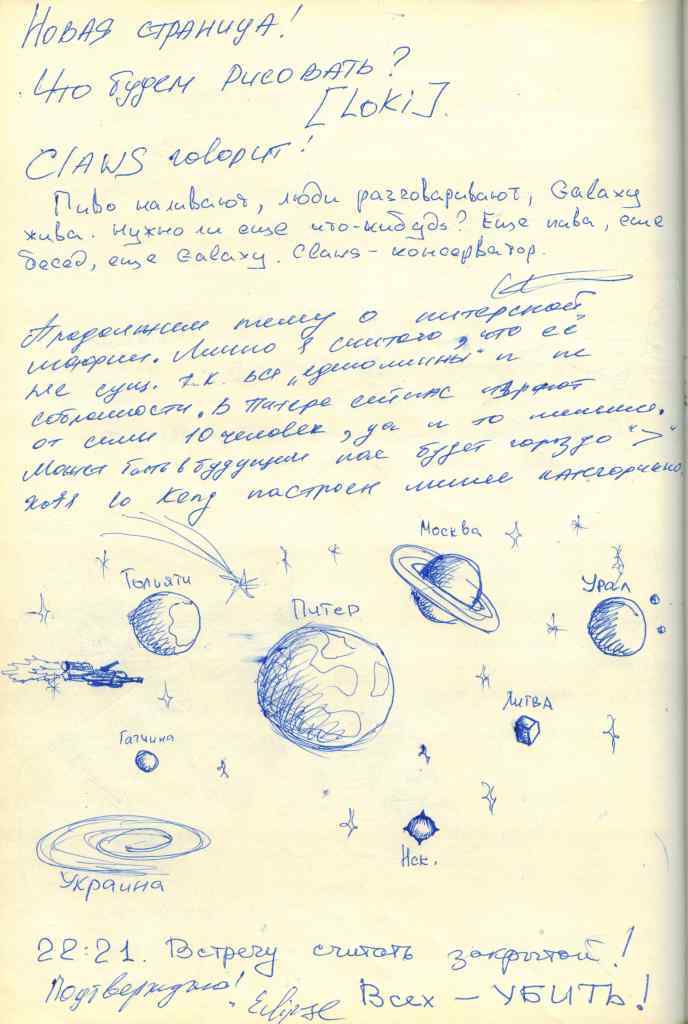 Новая страница!
Что будем рисовать?
[Loki].
Claws говорит!
Пиво наливают, люди разговаривают, Galaxy
жива. Нужно ли еще что-нибудь? Еще пива, еще
бесед, еще Galaxy. Claws - консерватор.
Продолжим тему о питерской
Лично я считаю, что её
не сущ. т.к. все и не
В Питере сейчас играют
от силы 10 человек, да и то
Может быть в будущем нас будет гораздо ">"
хотя настроен менее
Москва
Тольяти
Урал
Питер
Литва
Гатчина
Нск.
Украина
22:21. Встречу считать закрытой!
Подтверждаю!
Eclipse Всех - УБИТЬ!